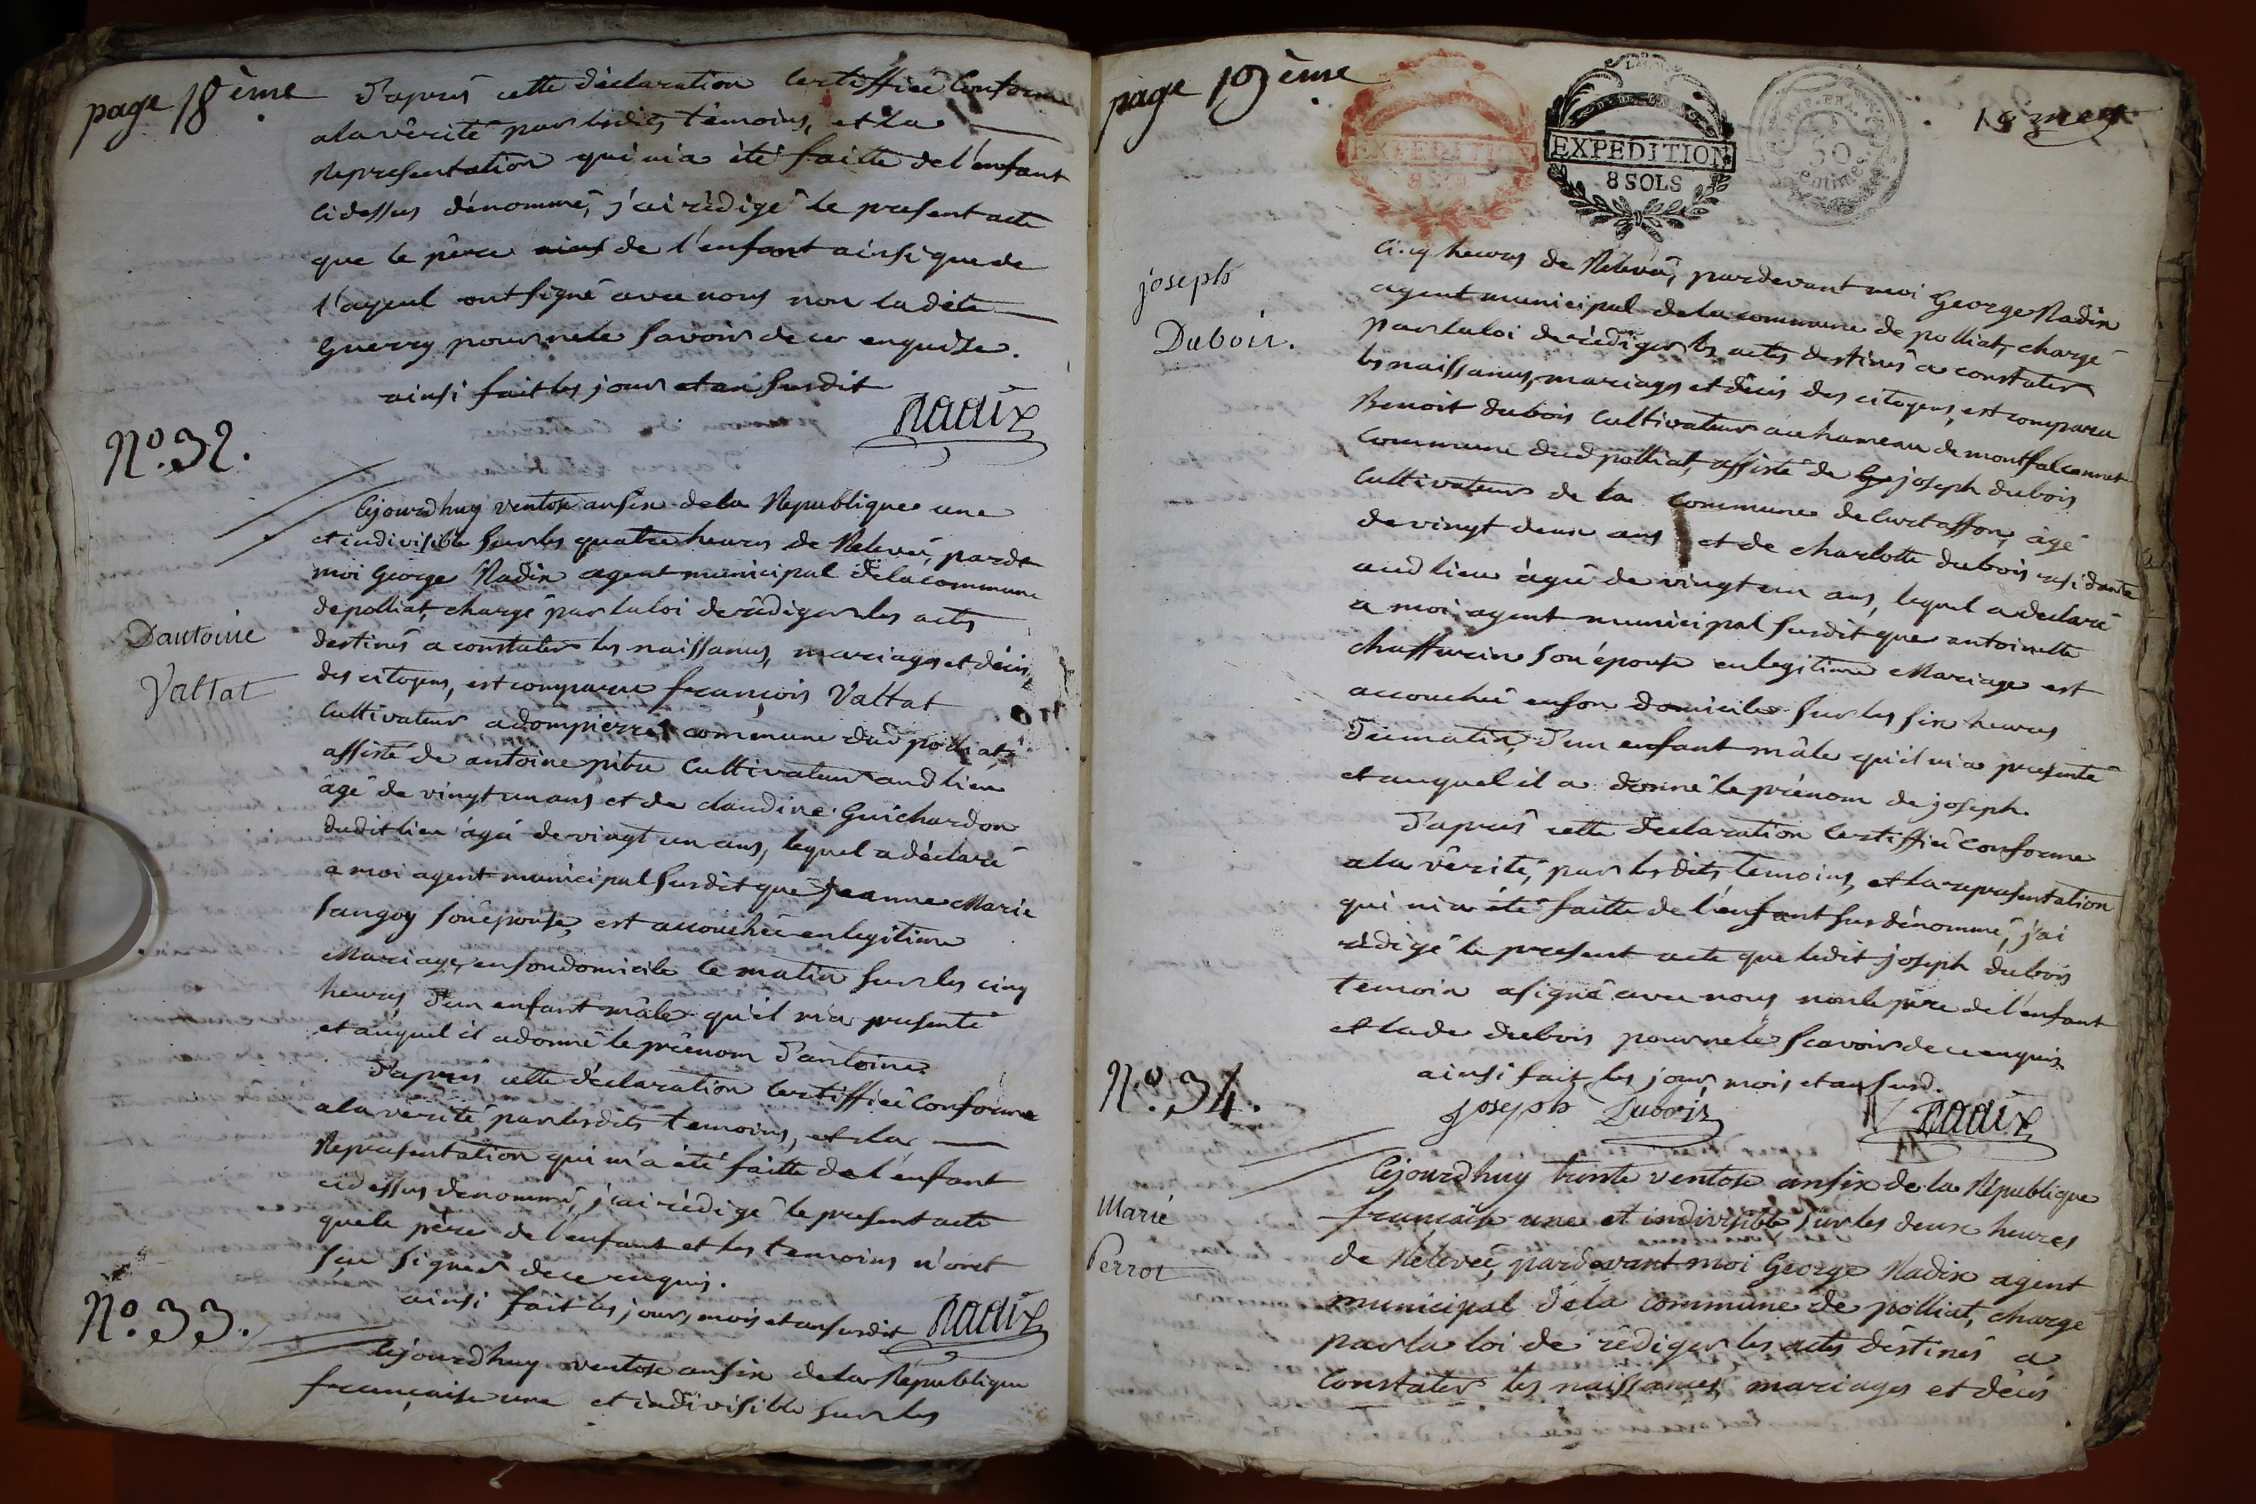 page 18ème
D'après cette déclaration certiffiée Conforme
a la vérité par lesdits témoins, et la
Représentation qui m'a été faitte de l'enfant
Cidessus dénommé, j'ai rédigé le present acte
que le père de l'enfant ainsi que de
l'ayeul ont signé avec nous non ladite
Guerry pour ne le savoir de ce enquise.
ainsi fait les jour et an susdit
Nadix
No. 32.
Dantoine
Vattat
Cejourdhuy ventose an six de la Republique une
et indivisible sur les quatre heures de Relevée, pardt
moi George Nadix agent municipal de la commune
de polliat, chargé par la loi de rédiger les actes
destinés a constater les naissances, mariages et décès,
des citoyens, est comparu françois Vattat
Cultivateur a dompierre commune dud polliat,
assisté de antoine pitre Cultivateur aud lieu
âgé de vingt un ans et de claudine Guichardon
dudit lieu âgée de vingt un ans, lequel a déclaré
a moi agent municipal susdit que Jeanne Marie
Sangoy son épouse, est accouchée en legitime
Mariage, en son domicile le matin sur les cinq
heures, d'un enfant mâle qu'il m'a presenté
et auquel il a donné le prénom d'antoine.
D'après cette déclaration Certiffiée Conforme
a la verité, par lesdits temoins, et la
Représentation qui m'a été faitte de l'enfant
cidessus denommé, j'ai rédigé le present acte
que le père de l'enfant et les temoins n'ont
sçu signer de ce enquis.
ainsi fait les jours, mois et an susdit
Nadix
No. 33.
Cejourdhuy ventose an six de la République
française une et indivisible sur les
page 19ème
EXPEDITION
8 SOLS
EXPEDITION
8 SOLS
REP. FRA.
50
centimes
joseph
Dubois.
Cinq heures de Relevée, pardevant moi George Nadix
agent municipal de la commune de polliat, chargé
par la loi de rédiger les actes destinés a constater
les naissances, mariages et décès des citoyens, est comparu
Benoit dubois Cultivateur au hameau de montfalconnet
Commune dud polliat, assisté de joseph dubois
Cultivateur de la commune de Curtaffon, âgé
de vingt deux ans et de charlotte dubois residante
aud lieu âgée de vingt un ans, lequel a declaré
a moi agent municipal susdit que antoinette
chaffurin son épouse en legitime Mariage est
accouchée en son domicile sur les six heures
du matin, d'un enfant mâle qu'il m'a presenté
et auquel il a donné le prénom de joseph.
D'après cette declaration Certiffiée Conforme
a la vérité, par lesdits temoins, et la representation
qui m'a été faitte de l'enfant susdénommé, j'ai
rédigé le present acte que ledit joseph dubois
temoin a signé avec nous, non le père de l'enfant
et lade dubois pour ne le Scavoir de ce enquis.
ainsi fait les jour, mois et an susd.
Joseph Dubois
Nadix
No. 34.
Marie
Perrot
Cejourdhuy trente ventose an six de la République
française une et indivisible sur les deux heures
de Relevée, pardevant moi George Nadix agent
municipal de la commune de polliat, chargé
par la loi de rédiger les actes déstinés a
Constater les naissances, mariages et décès